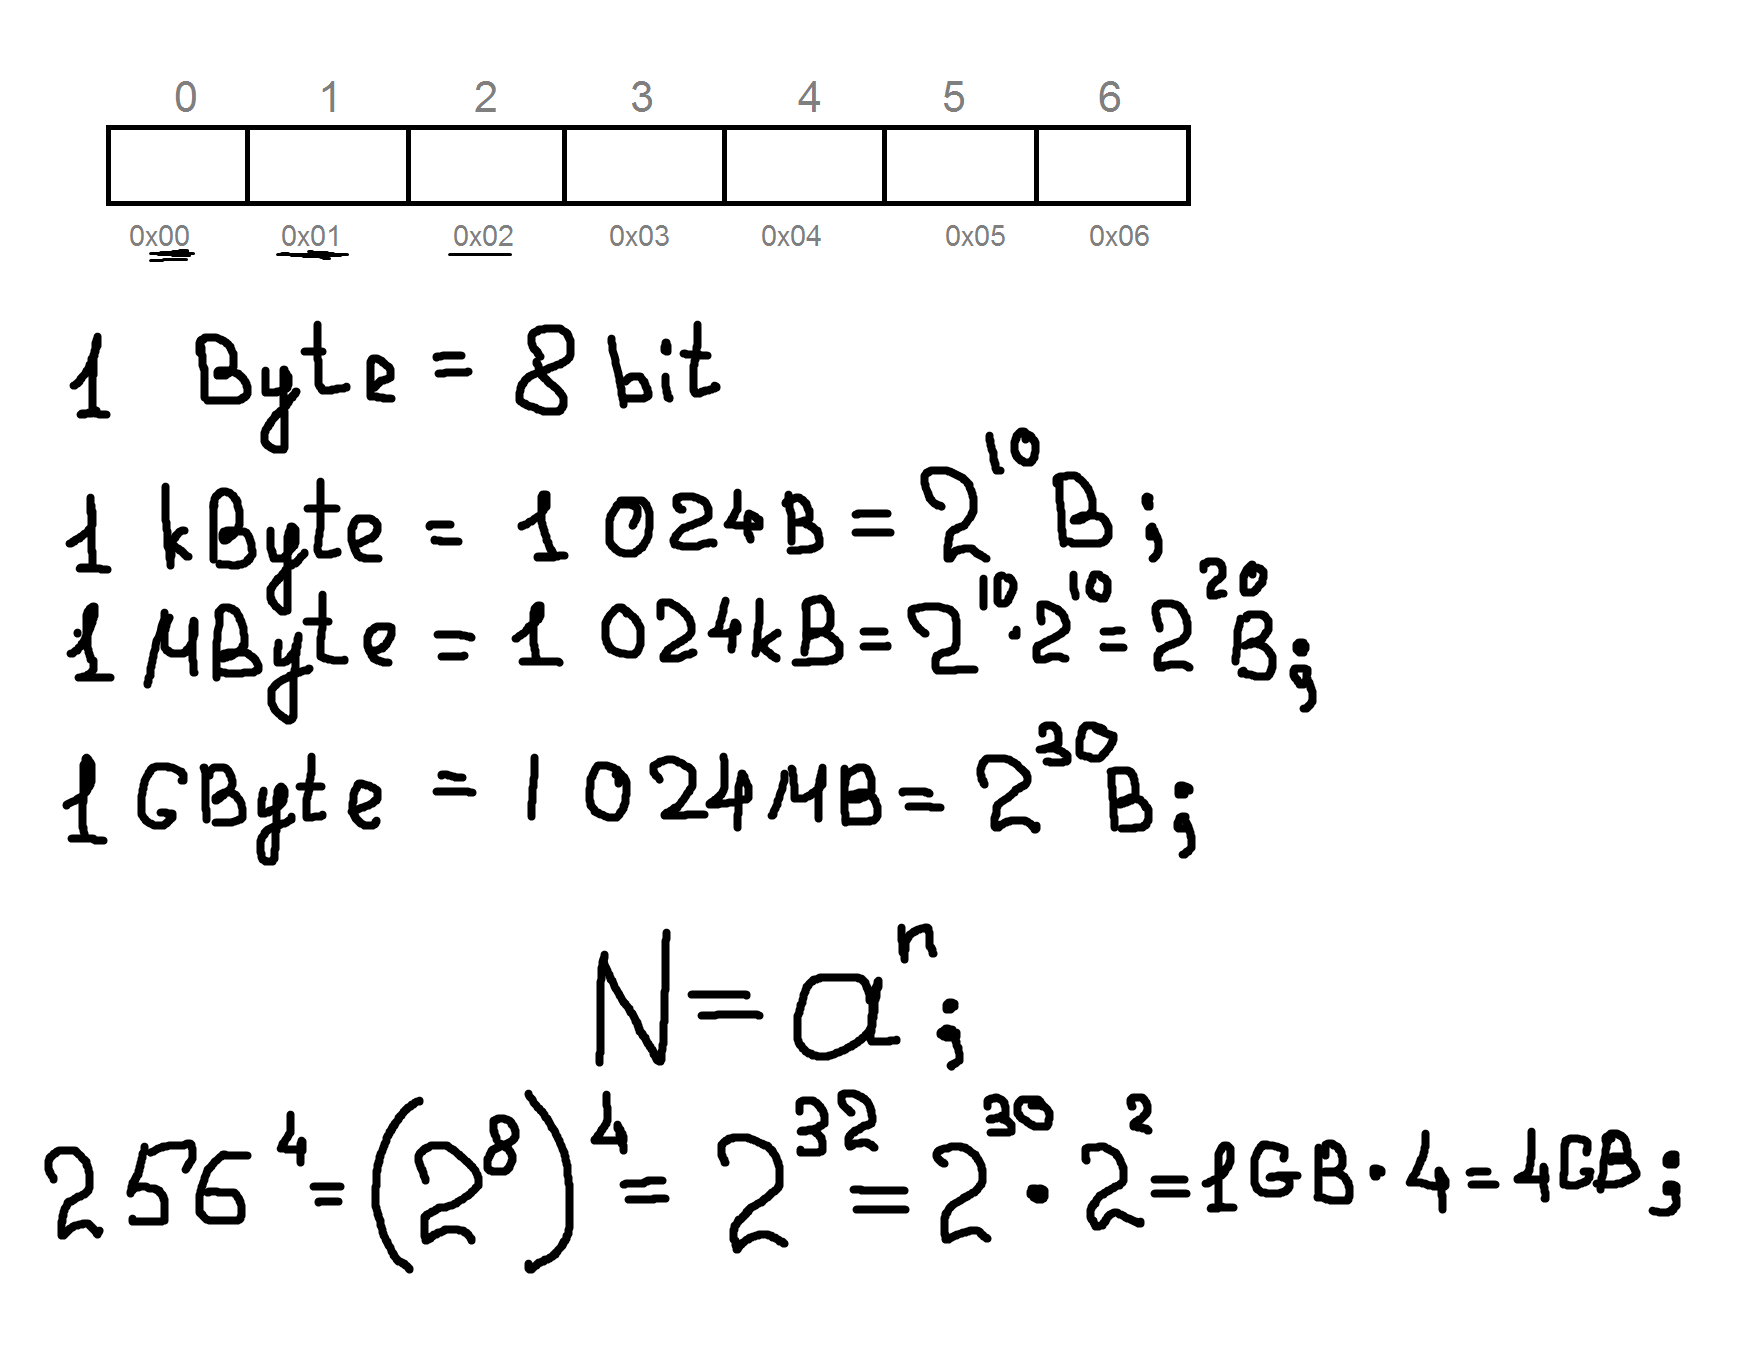 0 1 2 3 4 5 6
0x00 0x01 0x02 0x03 0x04 0x05 0x06
1 Byte = 8 bit
1 kByte = 1 024B = 2^10 B;
1 MByte = 1 024kB = 2^10 · 2^10 = 2^20 B;
1 GByte = 1 024MB = 2^30 B;
N = a^n;
256^4 = (2^8)^4 = 2^32 = 2^30 · 2^2 = 1GB · 4 = 4GB;